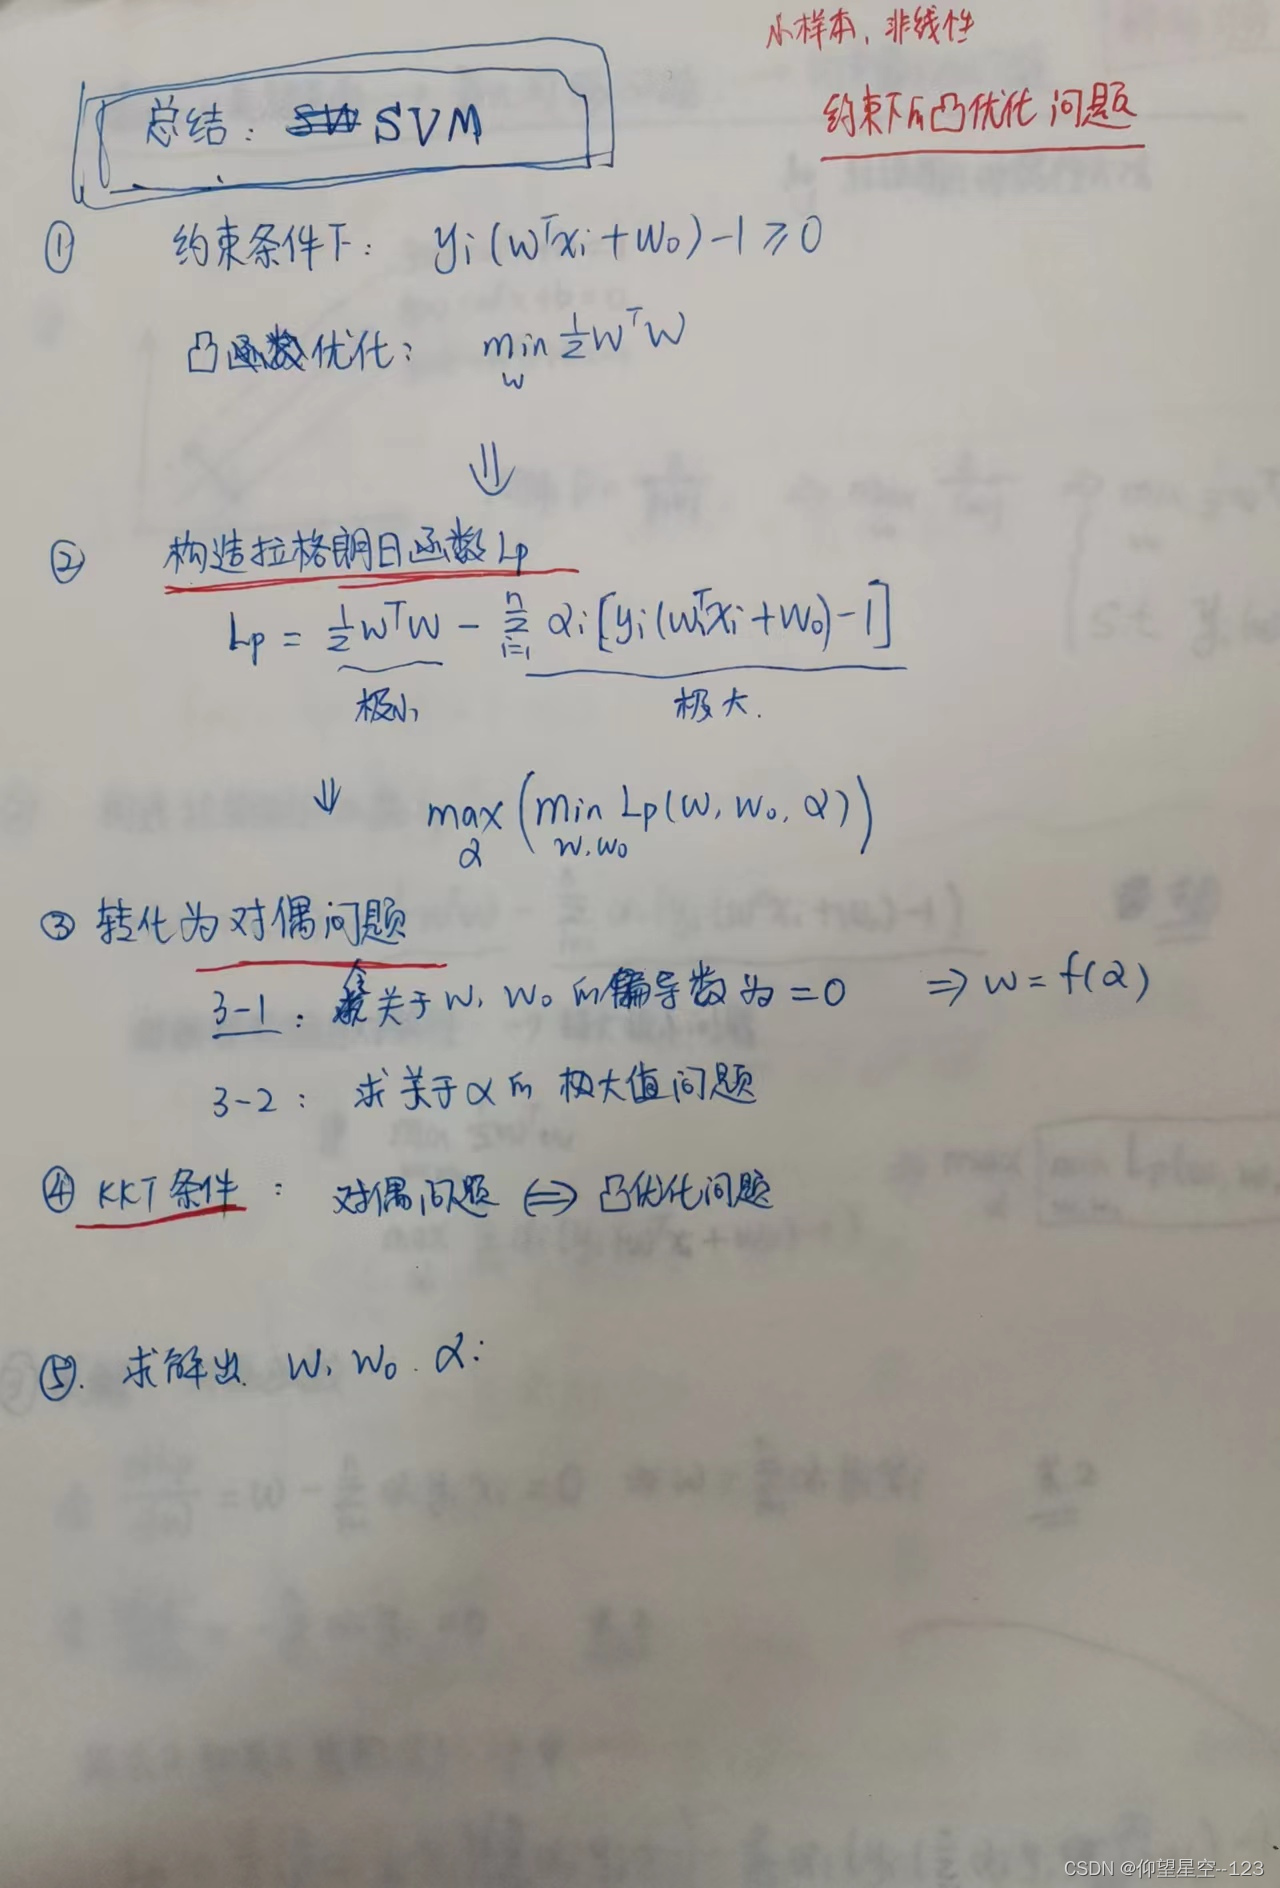 小样本，非线性
总结：SVM
约束下的凸优化问题
① 约束条件下： yi(wᵀxi+w₀)-1≥0
凸函数优化： min ½wᵀw
w
⇓
② 构造拉格朗日函数Lp
Lp = ½wᵀw - Σ αi[yi(wᵀxi+w₀)-1]
n
i=1
极小 极大.
⇓ max(min Lp(w, w₀, α))
α w,w₀
③ 转化为对偶问题
3-1： 求关于w, w₀的偏导数为=0 ⇒ w=f(α)
3-2： 求关于α的极大值问题
④ KKT条件： 对偶问题 ⇔ 凸优化问题
⑤. 求解出 w, w₀. α:
CSDN @仰望星空--123